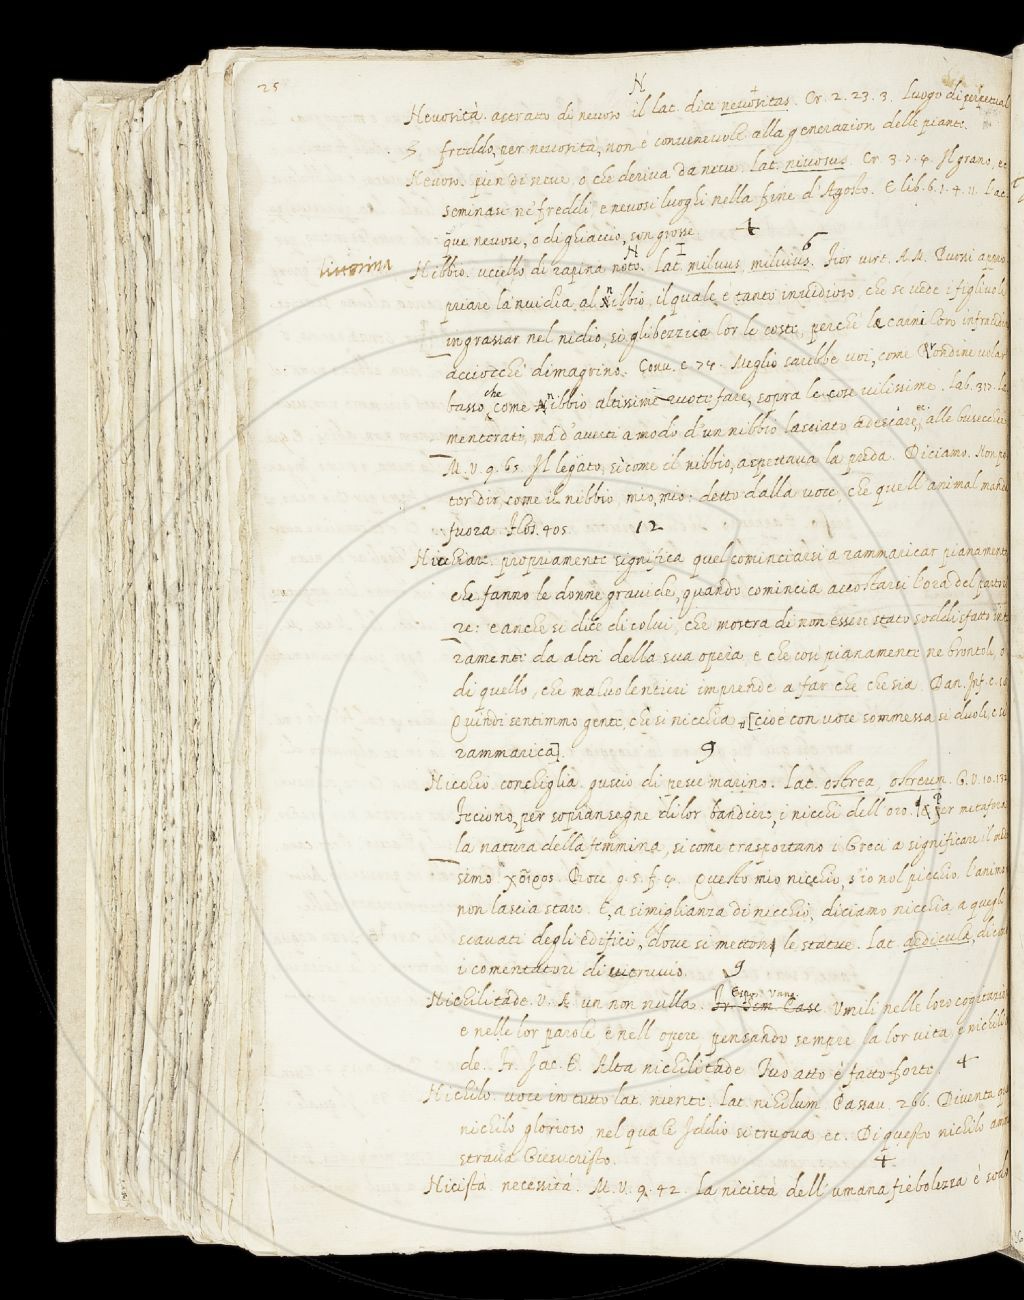 25
N
Neuosità. astratto di neuoso il lat. dice neuositas. Cr. 2. 23. 3. Luogo di perpetual
5. freddo, per neuosità, non è conueneuole alla generazion delle piante.
Neuoso. pien di neue, o che deriua da neue. Lat. niuosus. Cr. 3. 7. 4. Il grano, e
seminasi ne' freddi, e neuosi luoghi nella fine d'Agosto. E lib. 6. 1. 4. 11. L'ac
que neuose, o di ghiaccio, son grosse 4
Nibbio. uccello di rapina noto. Lat. miluus, miluius. 6 Fior virt. A. M. Puossi appro
priare la 'nuidia, al nibbio, il quale è tanto inuidioso, che se uede i figliuoli
ingrassar nel nidio, si gli bezzica lor le coste, perchè le carni loro infracidi
acciocchè dimagrino. Conu. c. 74. Meglio sarebbe uoi, come rondine uolar
basso, che come nibbio altissime ruote fare, sopra le cose uilissime. Lab. 317. le
mentorati, ma d'auerti a modo d'un nibbio lasciato adescare, et alle busecchie
M. V. 9. 65. Il legato, sì come il nibbio, aspettaua la preda. Diciamo. Non po
ter dir, come il nibbio, mio, mio: detto dalla uoce, che quell' animal manda
fuora. Flos. 405. 12
Nicchiare. propriamente significa quel cominciarsi a rammaricar pianamente
che fanno le donne grauide, quando comincia accostarsi l'ora del partori
re: e anche si dice di colui, che mostra di non essere stato soddisfatto inte
ramente da altri della sua opera, e che così pianamente ne brontoli, o
di quello, che maluolentieri imprende a far che che sia. Dan. Inf. c. 18
Quindi sentimmo gente, che si nicchia [cioè con uoce sommessa si duole, e si
rammarica]. 9
Nicchio. conchiglia. guscio di pesce marino. Lat. ostrea, ostreum. G. V. 10. 132
Feciono, per sopransegne di lor bandiere, i nicchi dell' oro. Per metafora
la natura della femmina, sì come trasportano i Greci a significare il mede
simo χοῖρος. Bocc. g. 5. f. 4. Questo mio nicchio, s'io nol picchio. l'animo
non lascia stare. E, a simiglianza di nicchio, diciamo nicchia a quegli
scauati degli edifici, doue si metton le statue. Lat. aedicula, dicon
i comentatori di uitruuio. 9
Nichilitade. V. A. un non nulla. Esp. Vang. Vmili nelle loro cogitazion
e nelle lor parole e nell' opere, pensando sempre la lor uita, è nichilita
de. Fr. Jac. T. Alta nichilitade Tuo atto è tanto forte. 4
Nichilo. uoce in tutto lat. niente. Lat. nihilum. Passau. 266. Diuenta qu
nichilo glorioso nel quale Iddio si truoua ec. Di questo nichilo amm
straua Giesucristo. 4
Nicistà. necessità. M. V. 9. 42. La nicistà dell' umana fiebolezza è soda